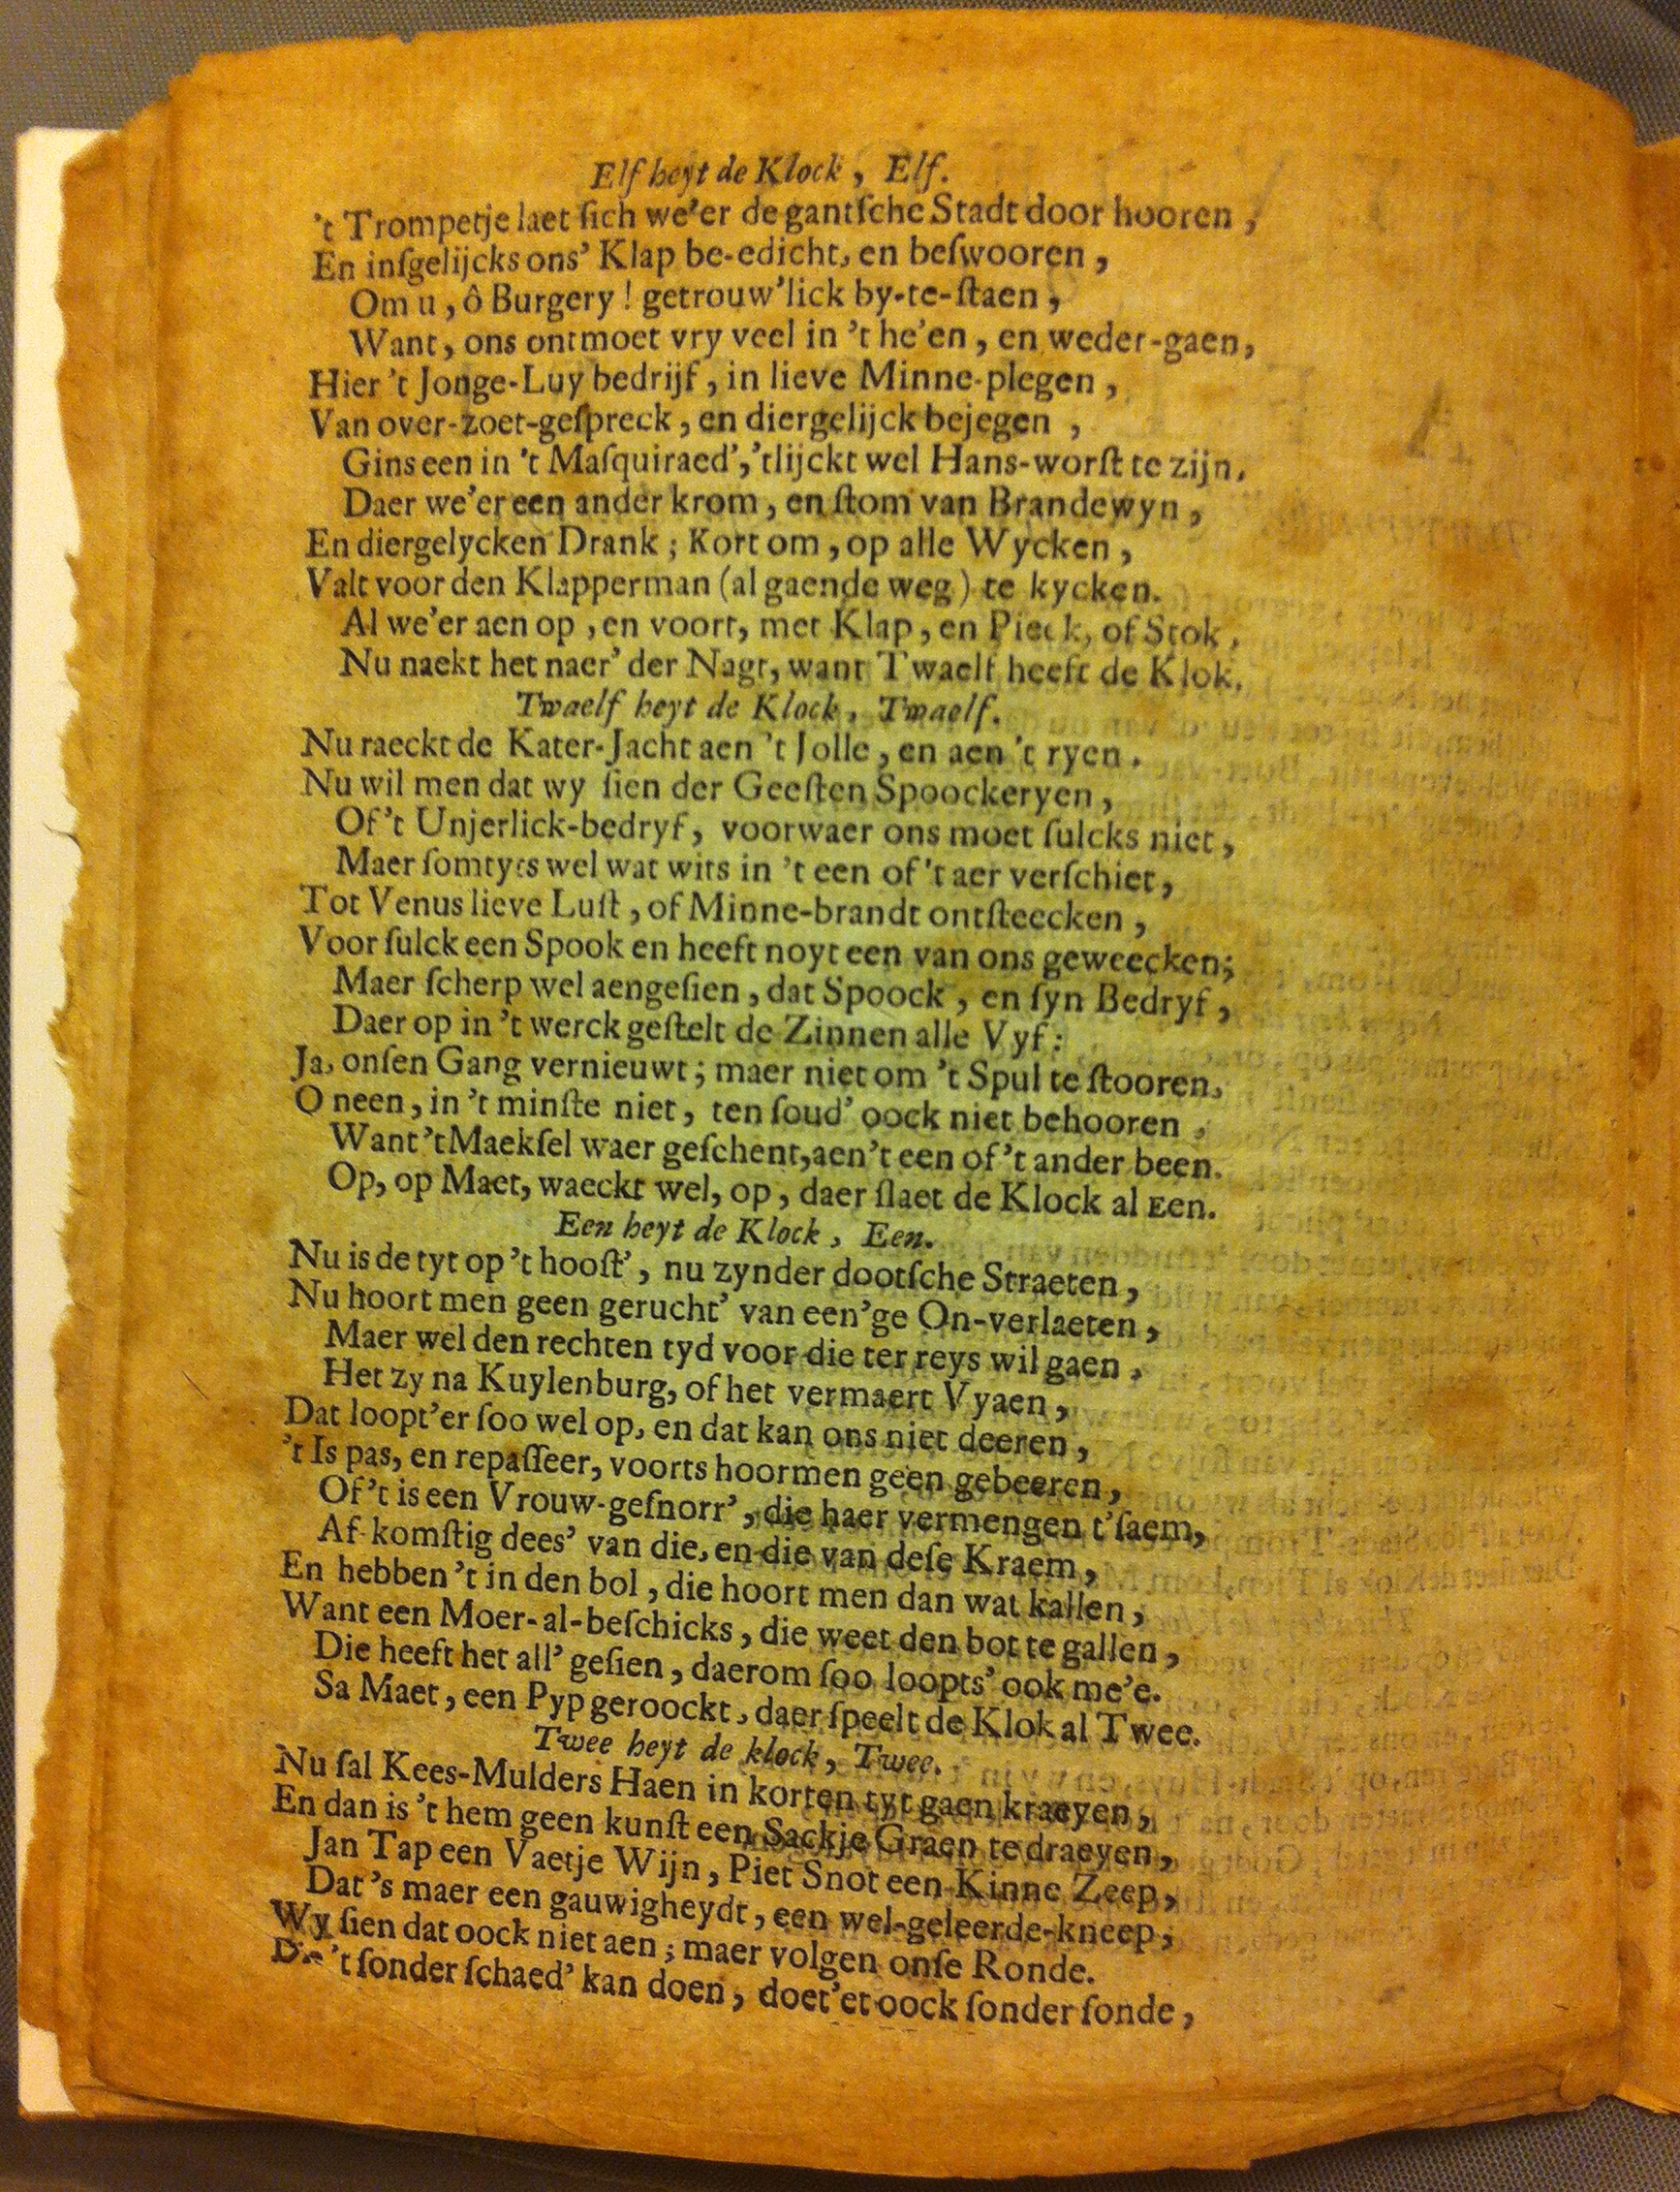 Elf heyt de Klock, Elf.
't Trompetje laet ſich we'er de gantſche Stadt door hooren,
En inſgelijcks ons' Klap be-edicht, en beſwooren,
Om u, ô Burgery! getrouw'lick by-te-ſtaen,
Want, ons ontmoet vry veel in 't he'en, en weder-gaen,
Hier 't Jonge-Luy bedrijf, in lieve Minne-plegen,
Van over-zoet-geſpreck, en diergelijck bejegen,
Gins een in 't Maſquiraed', 'tlijckt wel Hans-worſt te zijn.
Daer we'er een ander krom, en ſtom van Brandewyn,
En diergelycken Drank; Kort om, op alle Wycken,
Valt voor den Klapperman (al gaende weg) te kycken.
Al we'er aen op, en voort, met Klap, en Pieck, of Stok,
Nu naekt het naer' der Nagt, want Twaelf heeft de Klok.
Twaelf heyt de Klock, Twaelf.
Nu raeckt de Kater-Jacht aen 't Jolle, en aen 't ryen.
Nu wil men dat wy ſien der Geeſten Spoockeryen,
Of 't Unjerlick-bedryf, voorwaer ons moet ſulcks niet,
Maer ſomtyts wel wat wits in 't een of 't aer verſchiet,
Tot Venus lieve Luſt, of Minne-brandt ontſteecken,
Voor ſulck een Spook en heeft noyt een van ons geweecken;
Maer ſcherp wel aengeſien, dat Spoock, en ſyn Bedryf,
Daer op in 't werck geſtelt de Zinnen alle Vyf:
Ja, onſen Gang vernieuwt; maer niet om 't Spul te ſtooren,
O neen, in 't minſte niet, ten ſoud' oock niet behooren,
Want 't Maekſel waer geſchent, aen 't een of 't ander been.
Op, op Maet, waeckt wel, op, daer ſlaet de Klock al Een.
Een heyt de Klock, Een.
Nu is de tyt op 't hooſt', nu zynder dootſche Straeten,
Nu hoort men geen gerucht' van een'ge On-verlaeten,
Maer wel den rechten tyd voor die ter reys wil gaen,
Het zy na Kuylenburg, of het vermaert Vyaen,
Dat loopt'er ſoo wel op, en dat kan ons niet deeren,
't Is pas, en repaſſeer, voorts hoormen geen gebeeren,
Of 't is een Vrouw-geſnorr', die haer vermengen t'ſaem,
Af-komſtig dees' van die, en die van deſe Kraem,
En hebben 't in den bol, die hoort men dan wat kallen,
Want een Moer-al-beſchicks, die weet den bot te gallen,
Die heeft het all' geſien, daerom ſoo loopts' ook me'e.
Sa Maet, een Pyp geroockt, daer ſpeelt de Klok al Twee.
Twee heyt de klock, Twee.
Nu ſal Kees-Mulders Haen in korten tyt gaen kraeyen,
En dan is 't hem geen kunſt een Sackje Graen te draeyen,
Jan Tap een Vaetje Wijn, Piet Snot een Kinne Zeep,
Dat 's maer een gauwigheydt, een wel-geleerde-kneep,
Wy ſien dat oock niet aen; maer volgen onſe Ronde.
Die 't ſonder ſchaed' kan doen, doet'et oock ſonder ſonde,